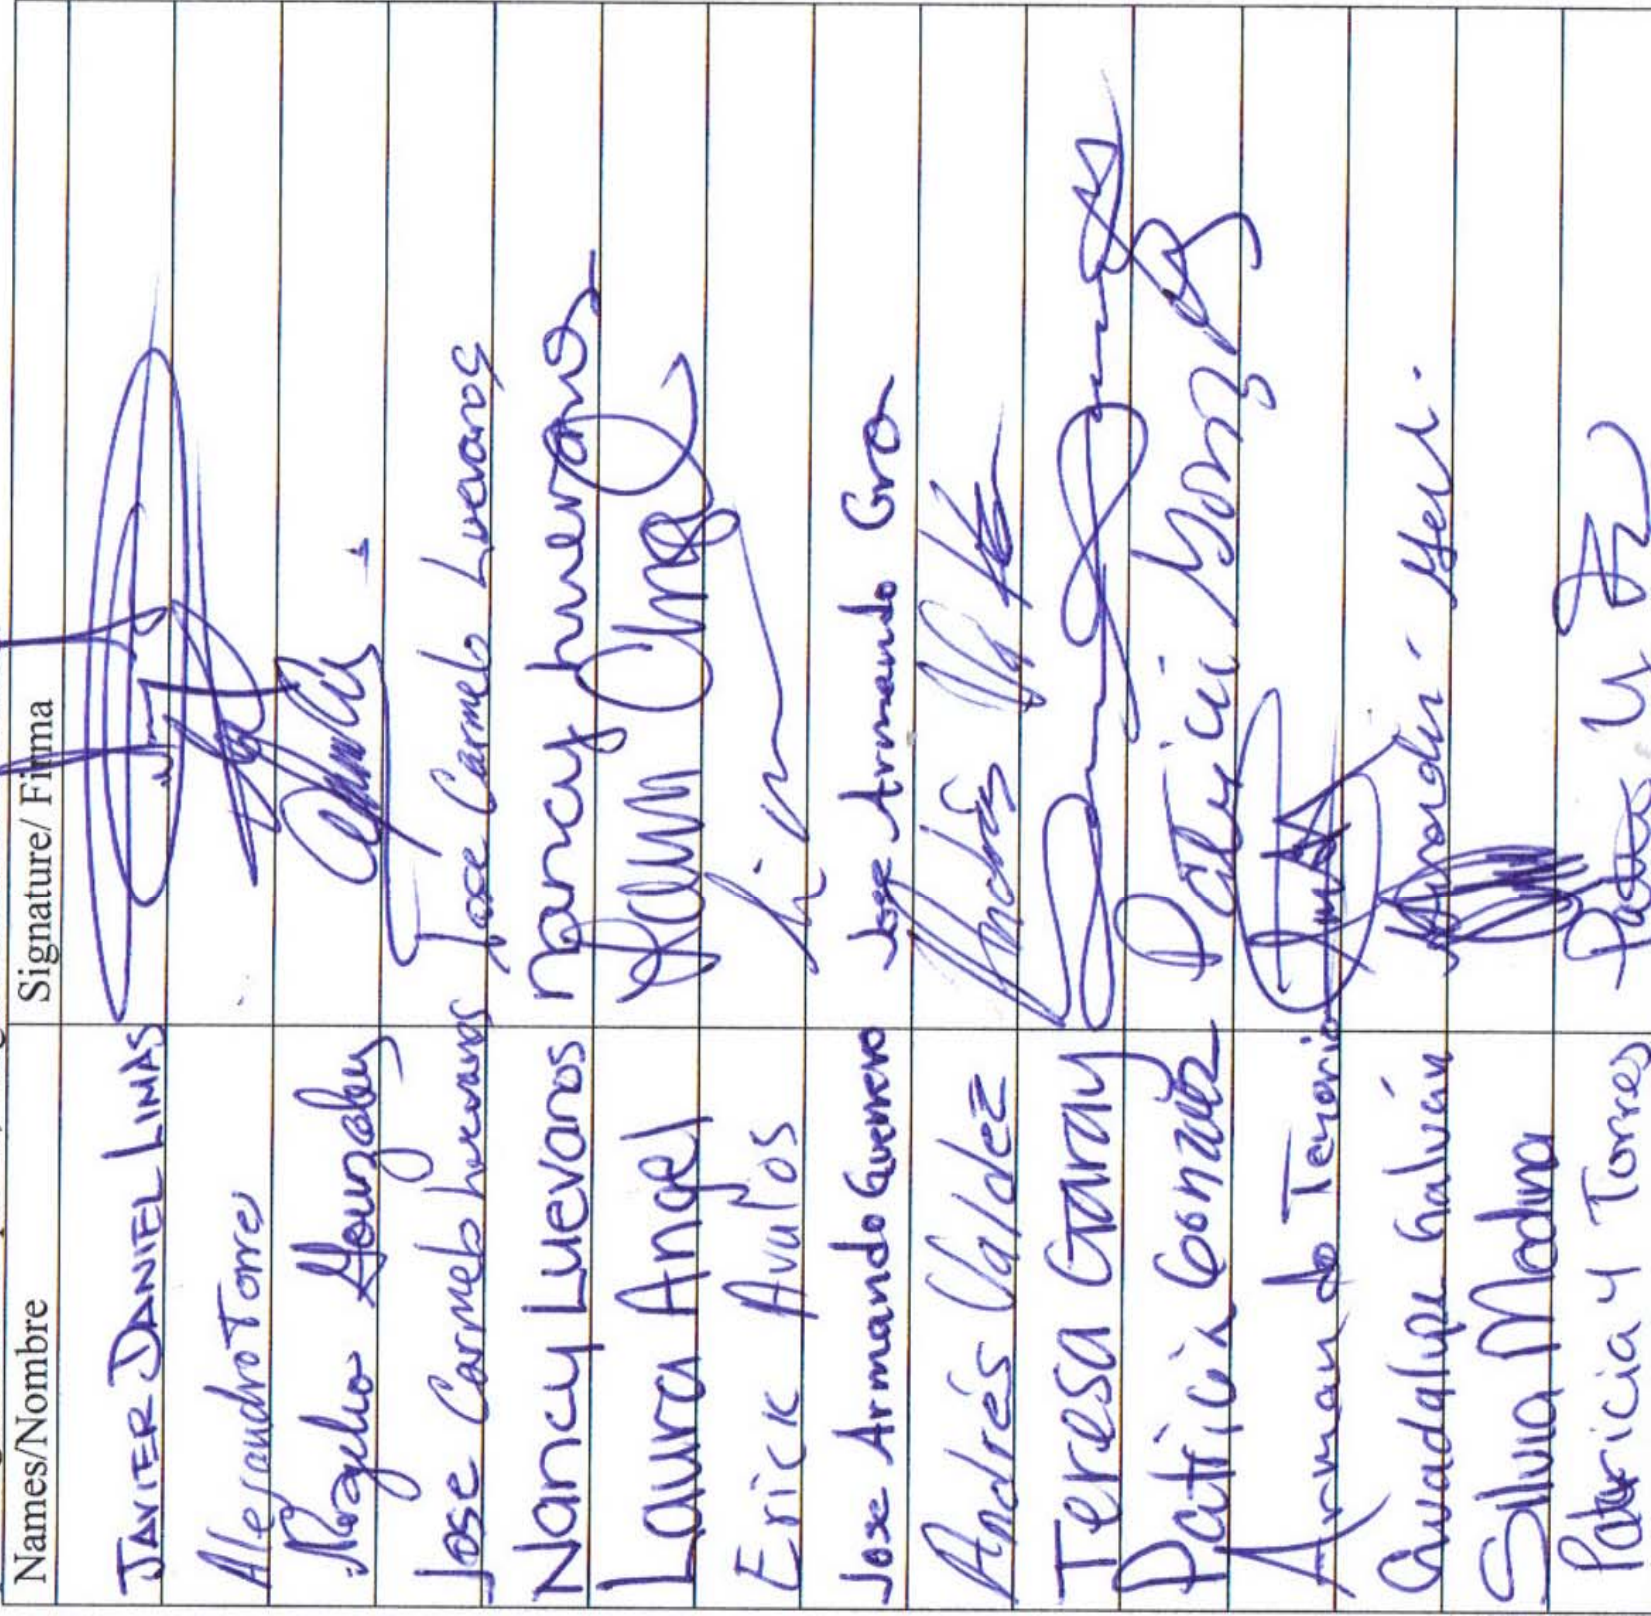 Names/Nombre Signature/ Firma
JAVIER DANIEL LIMAS
Alejandro Torre
Rogelio Gonzalez
Jose Carmelo Luevanos José Carmelo Luevanos
Nancy Luevanos Nancy Luevanos
Laura Angel
Erick Avalos
Jose Armando Guerrero Jose Armando Gro
Andrés Valdez Andrés
Teresa Garay
Patricia Gonzalez Patricia Gonz
Armando Tenorio
Guadalupe Galván
Silvia Medina
Patricia Y Torres